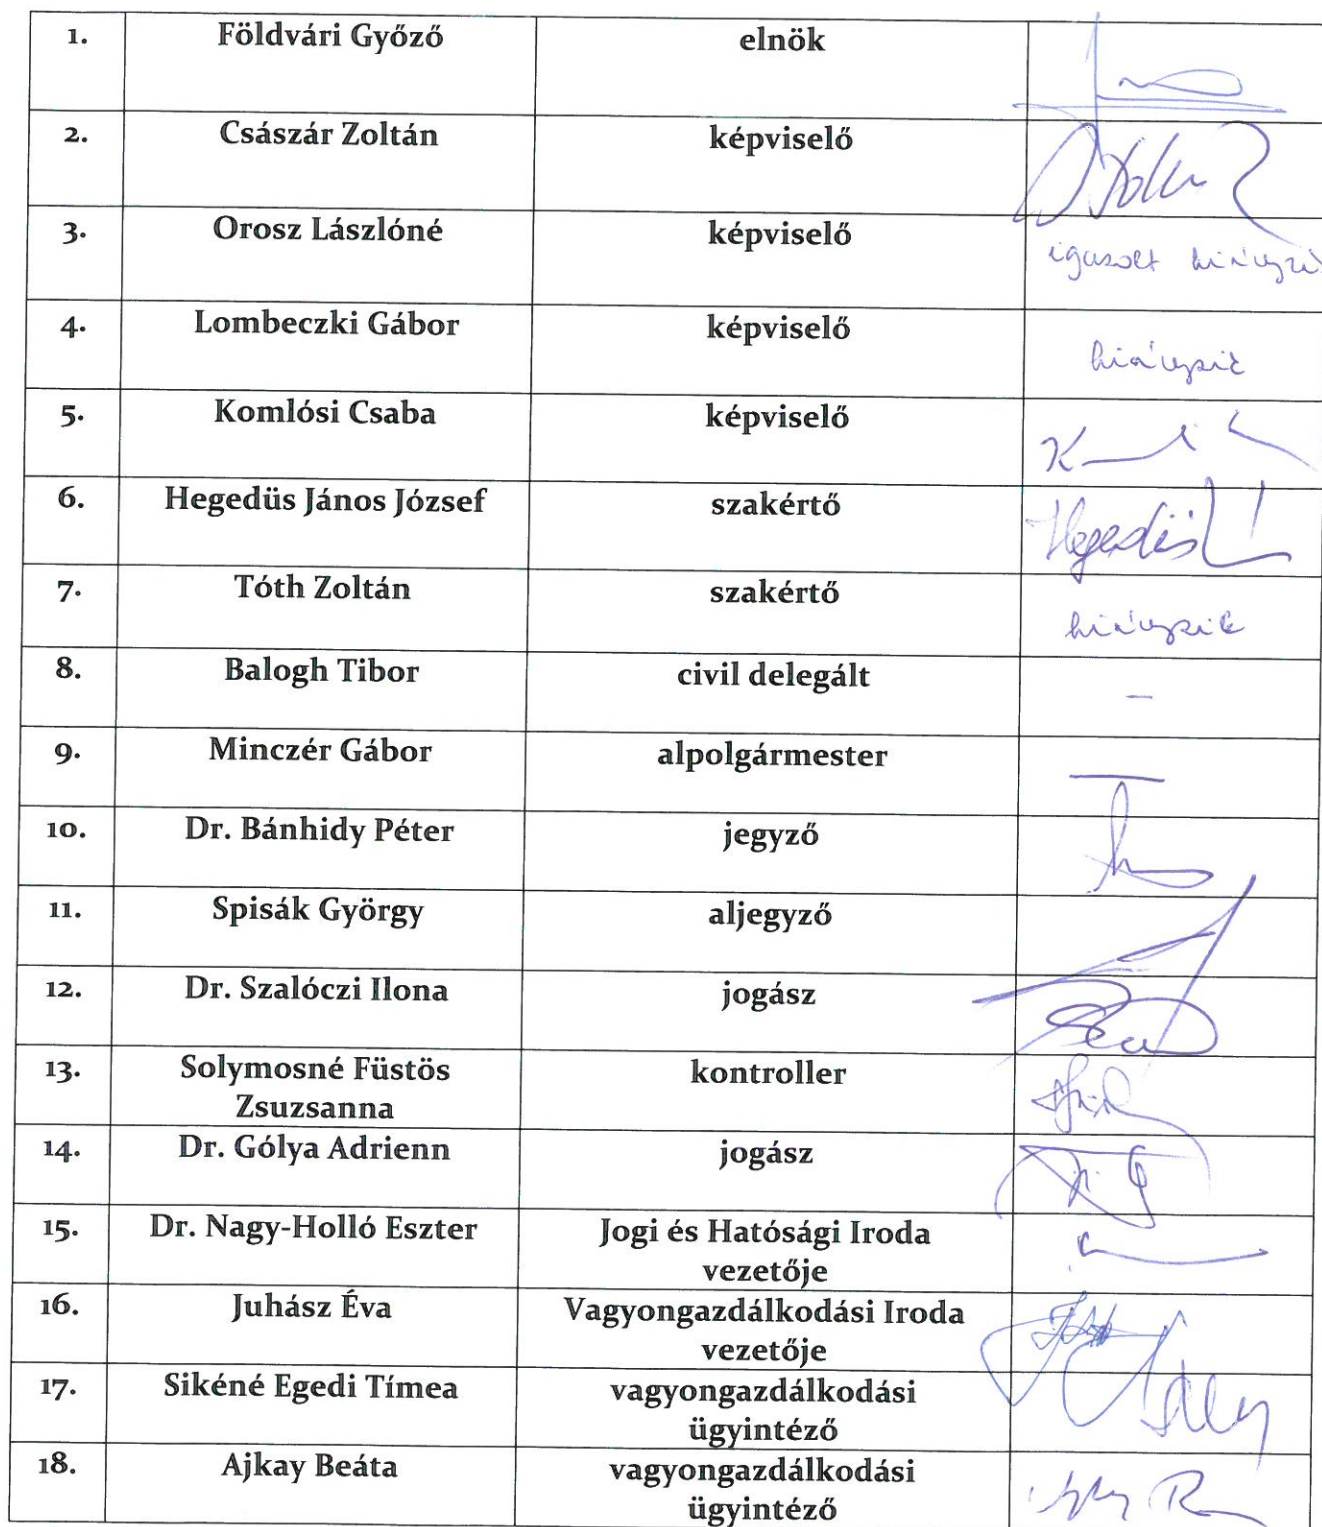 1. Földvári Győző elnök
2. Császár Zoltán képviselő
3. Orosz Lászlóné képviselő igazolt hiányzó
4. Lombeczki Gábor képviselő hiányzik
5. Komlósi Csaba képviselő
6. Hegedüs János József szakértő Hegedüs
7. Tóth Zoltán szakértő hiányzik
8. Balogh Tibor civil delegált –
9. Minczér Gábor alpolgármester
10. Dr. Bánhidy Péter jegyző
11. Spisák György aljegyző
12. Dr. Szalóczi Ilona jogász
13. Solymosné Füstös kontroller
Zsuzsanna
14. Dr. Gólya Adrienn jogász
15. Dr. Nagy-Holló Eszter Jogi és Hatósági Iroda
vezetője
16. Juhász Éva Vagyongazdálkodási Iroda
vezetője
17. Sikéné Egedi Tímea vagyongazdálkodási
ügyintéző
18. Ajkay Beáta vagyongazdálkodási
ügyintéző